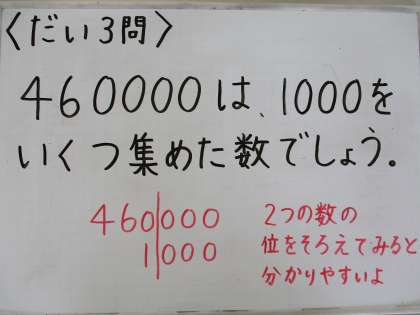 〈だい3問〉
460000は、1000を
いくつ集めた数でしょう。
460000
1000
2つの数の
位をそろえてみると
分かりやすいよ